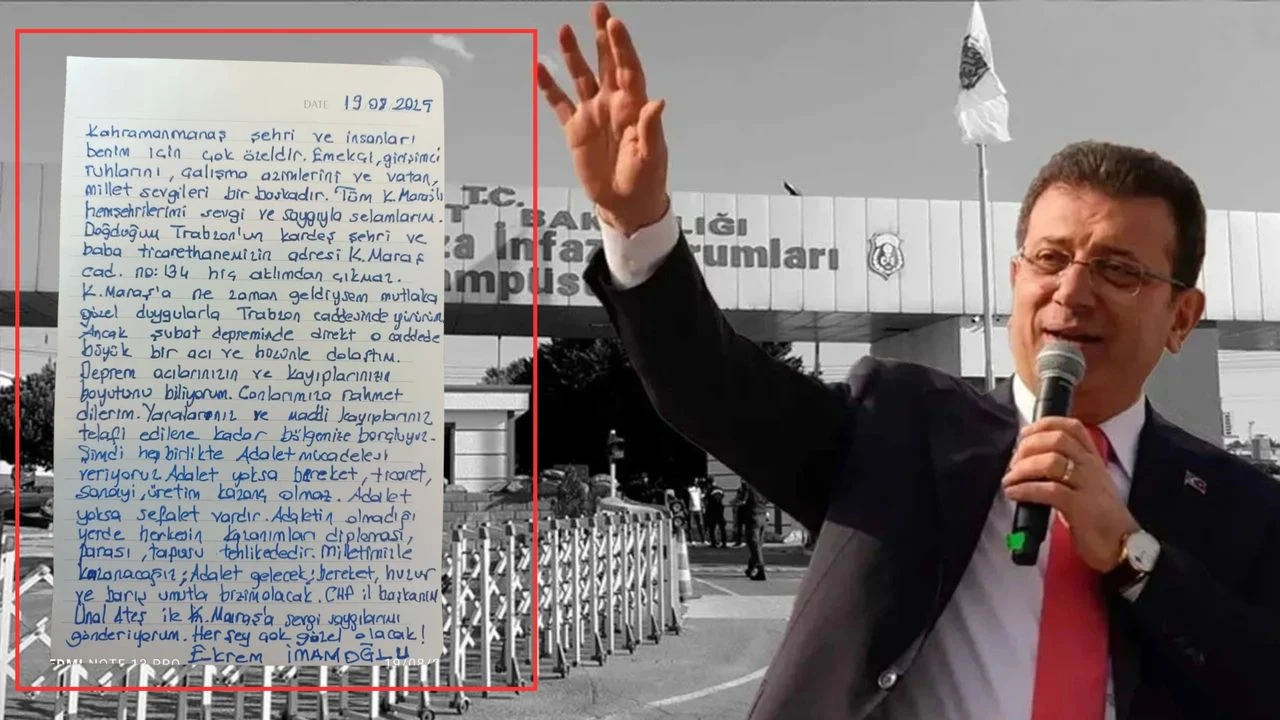 DATE 19 08 2025
Kahramanmaraş şehri ve insanları
benim için çok özeldir. Emekçi, girişimci
ruhlarını, çalışma azimlerini ve vatan,
millet sevgileri bir başkadır. Tüm K.Maraşlı
hemşehrilerimi sevgi ve saygıyla selamlarım.
Doğduğum Trabzon'un kardeş şehri ve
baba ticarethanemizin adresi K.Maraş
cad. no: 134 hiç aklımdan çıkmaz.
K.Maraş'a ne zaman geldiysem mutlaka
güzel duygularla Trabzon caddesinde yürürüm
Ancak şubat depreminde direkt o caddede
büyük bir acı ve hüzünle dolaştım.
Deprem acılarınızın ve kayıplarınızın
boyutunu biliyorum. Canlarımıza rahmet
dilerim. Yaralarınız ve maddi kayıplarınız
telafi edilene kadar bölgenize borçluyuz.
Şimdi hep birlikte Adalet mücadelesi
veriyoruz. Adalet yoksa bereket, ticaret,
sanayi, üretim kazanç olmaz. Adalet
yoksa sefalet vardır. Adaletin olmadığı
yerde herkesin kazanımları diploması,
parası, tapusu tehlikededir. Milletimizle
kazanacağız; Adalet gelecek; bereket, huzur
ve barış umutla bizim olacak. CHP il başkanım
Ünal Ateş ile K.Maraş'a sevgi saygılarımı
gönderiyorum. Her şey çok güzel olacak!
Ekrem İMAMOĞLU
NOTE 13 PRO 19/08/2
T.C.
T BAK LIĞI
za İnfaz urumları
ampüs